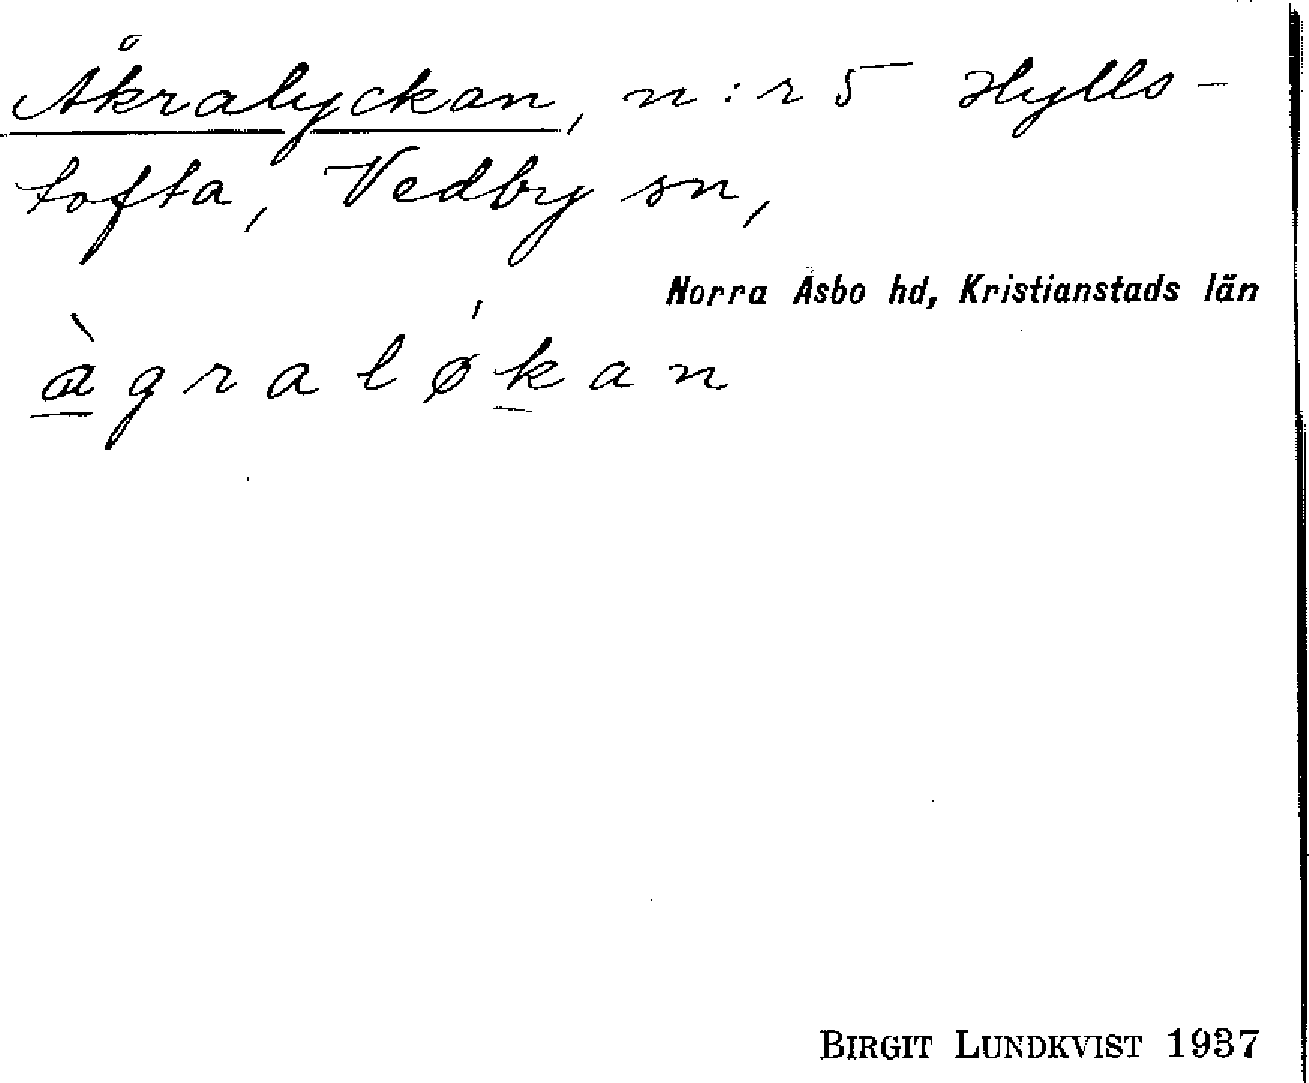 Åkralyckan, n:r 5 Hylls-
tofta, Vedby sn,
Norra Åsbo hd, Kristianstads län
àgraløkan
BIRGIT LUNDKVIST 1937